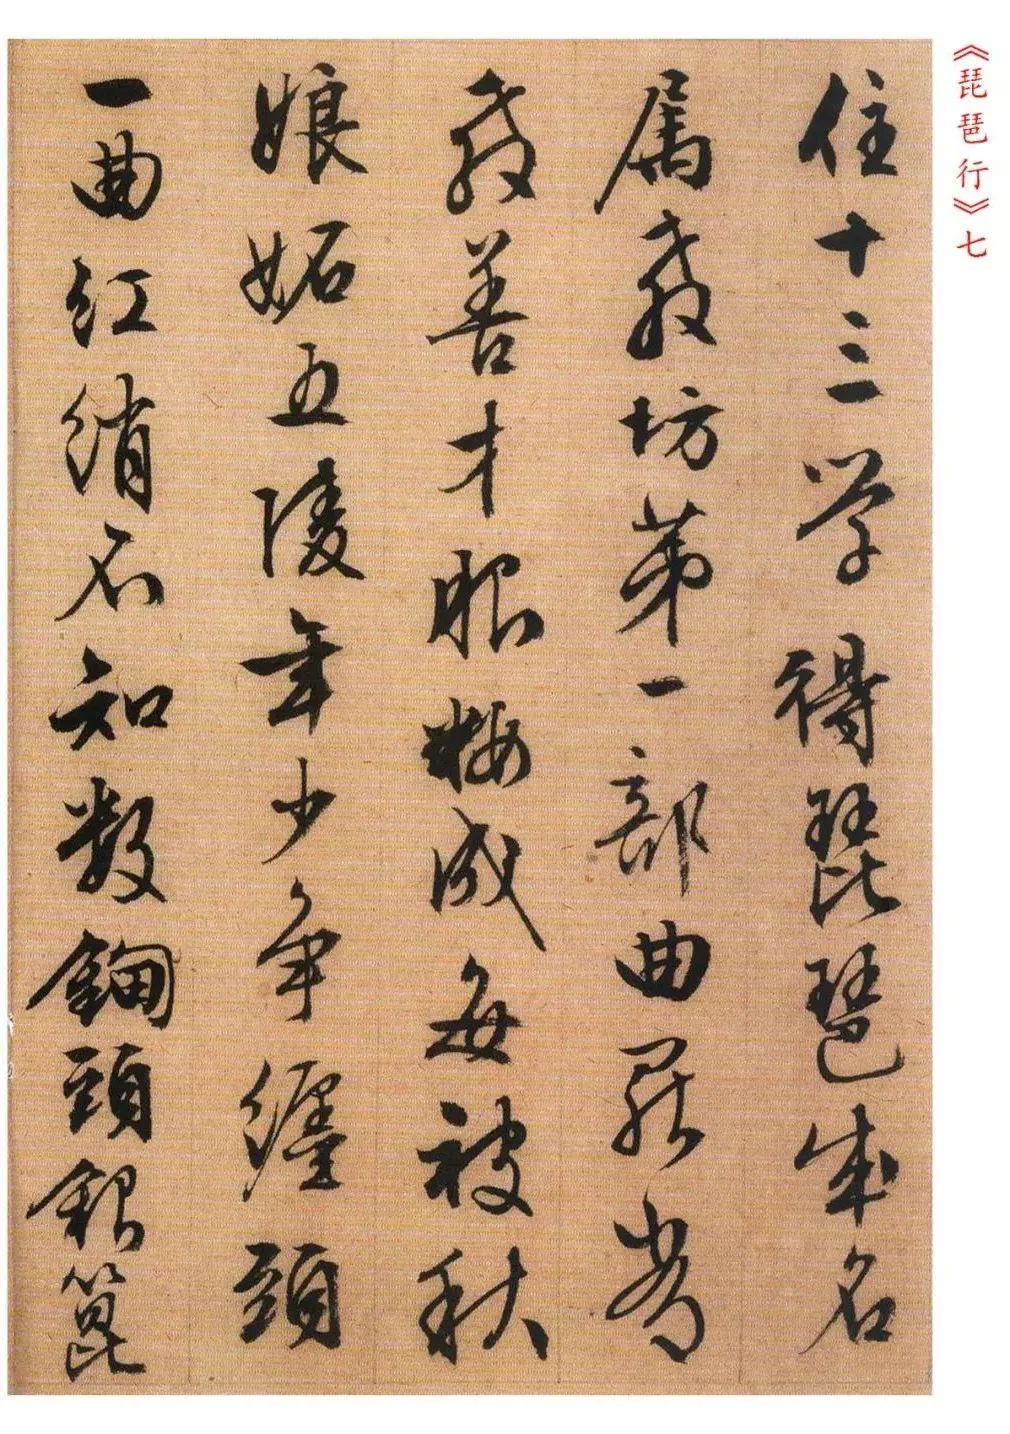 《琵琶行》七
住十三学得琵琶成名
属教坊第一部曲罷常
教善才服粧成每被秋
娘妬五陵年少争纏頭
一曲红绡不知数鈿頭銀篦